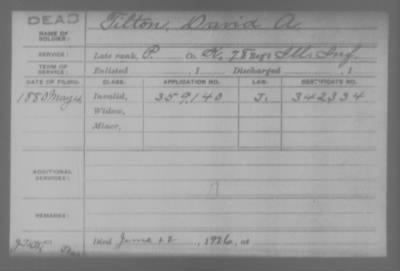 DEAD
NAME OF SOLDIER: Tilton, David A.
SERVICE: Late rank, P. Co. K, 78 Reg't Ill. Inf.
TERM OF SERVICE: Enlisted , 1 Discharged , 1
DATE OF FILING. CLASS. APPLICATION NO. LAW. CERTIFICATE NO.
1880 May Invalid, 359,140 J. 342334
Widow,
Minor,
ADDITIONAL SERVICES:
REMARKS:
Died June 22, 1926, at